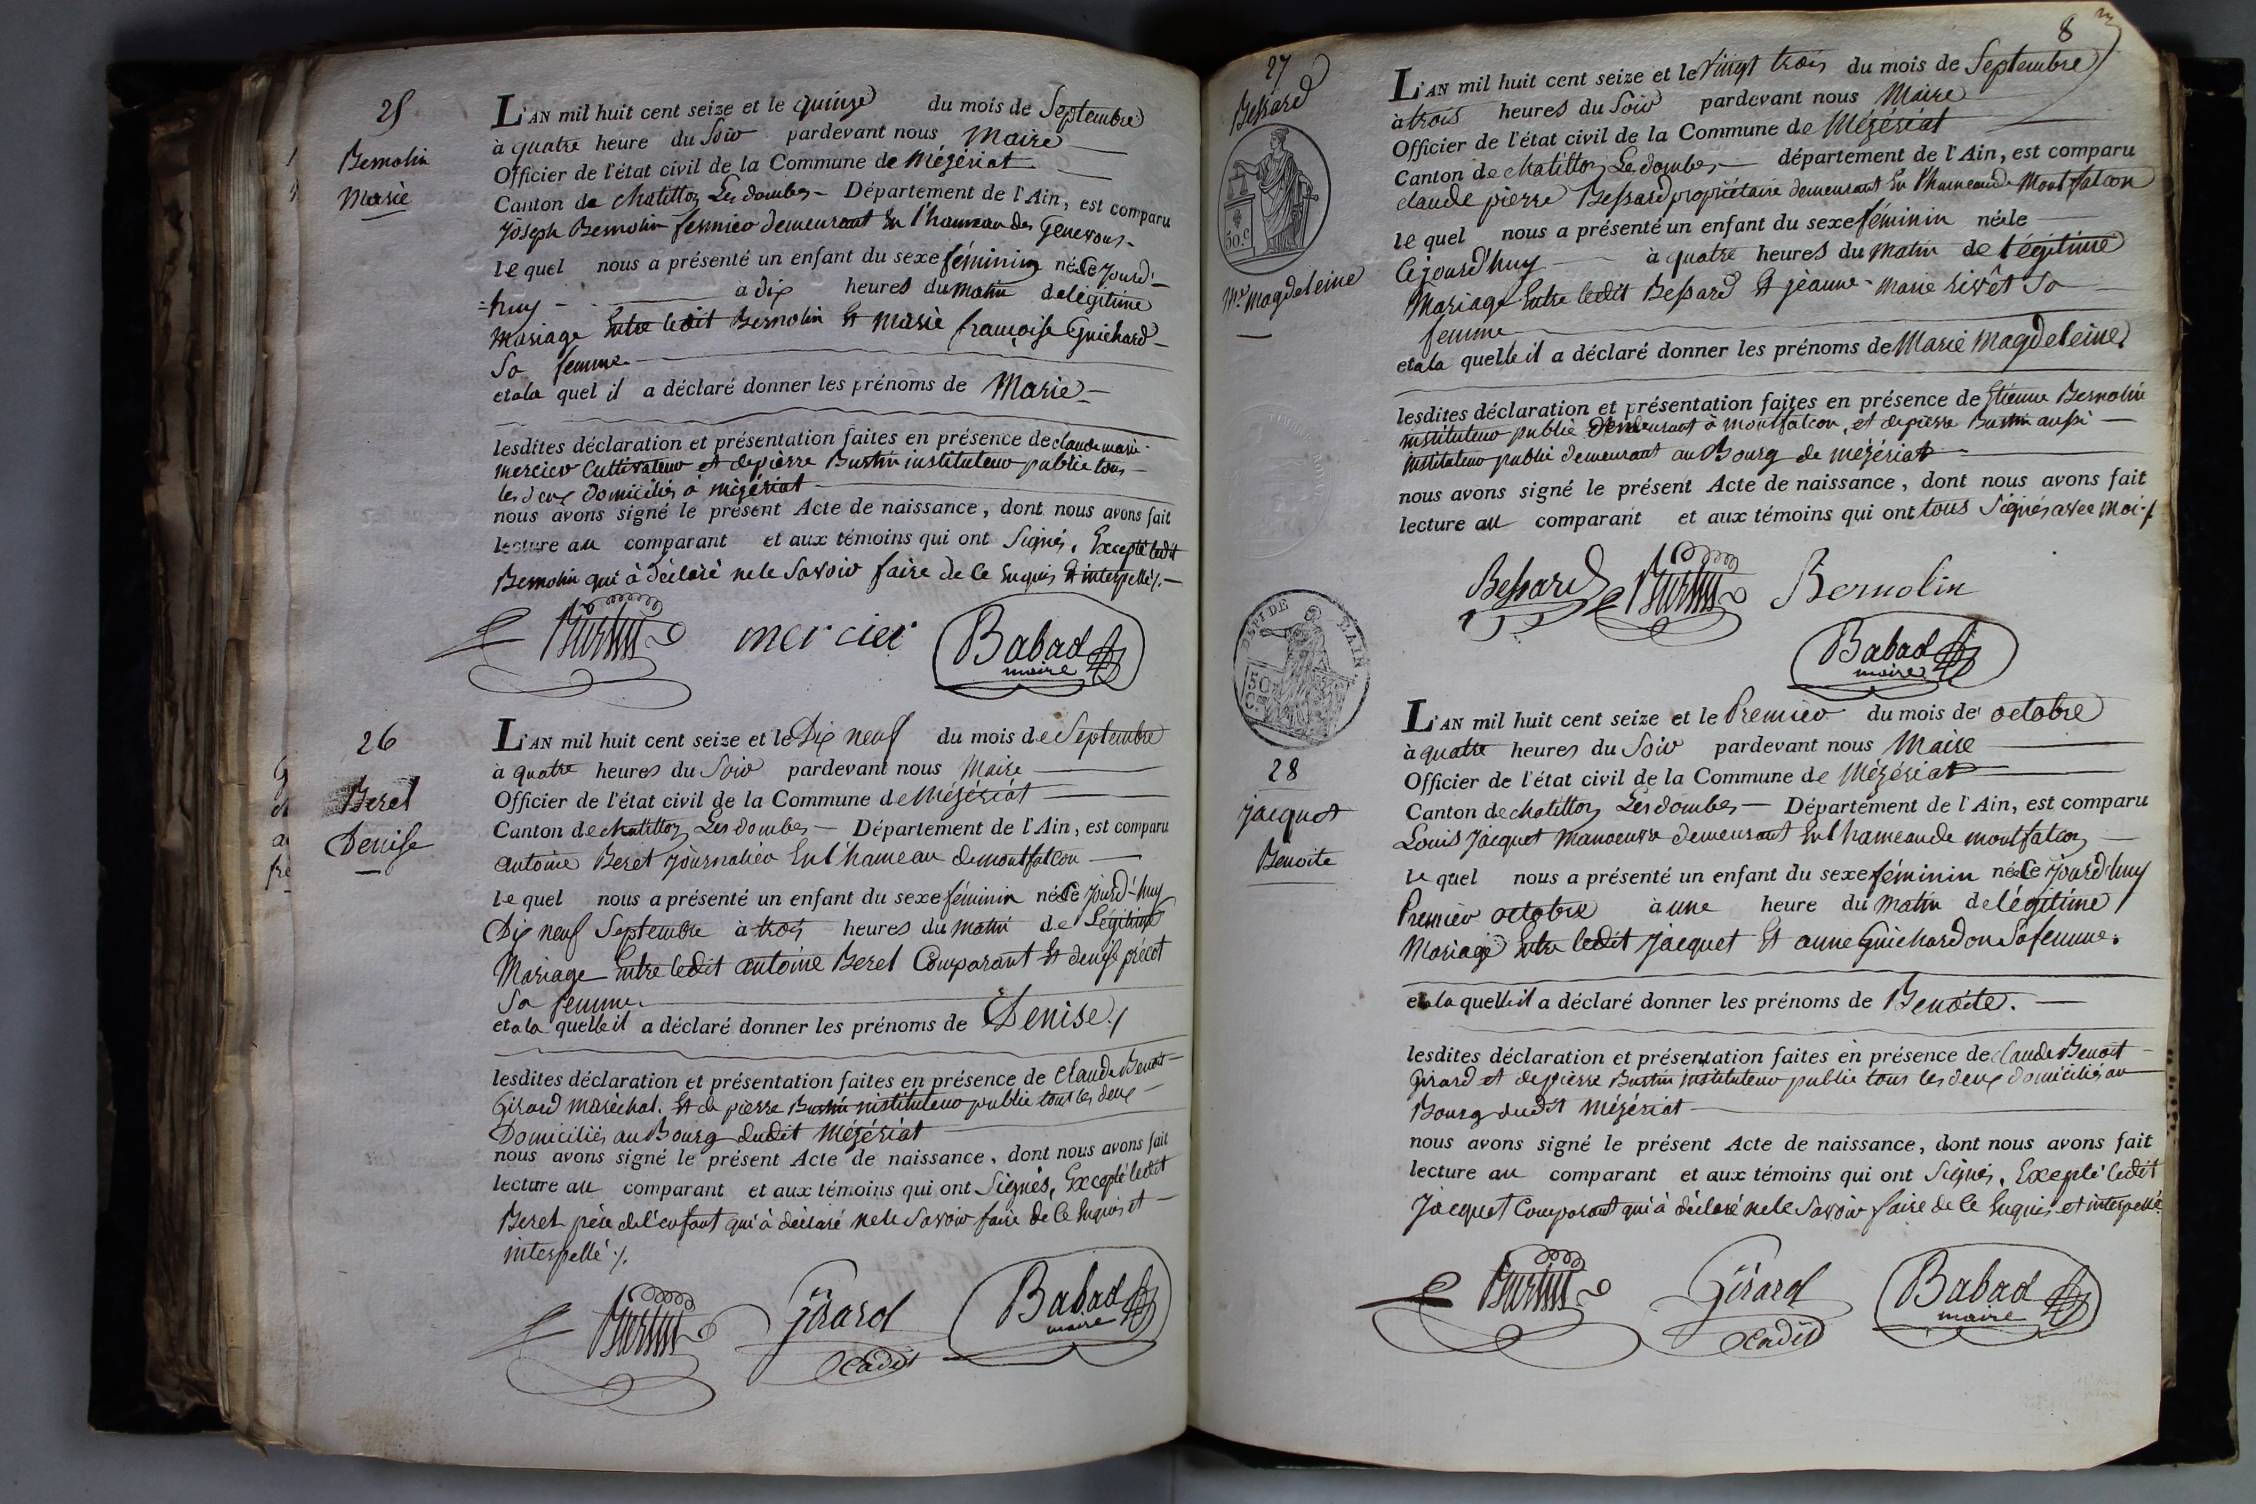 25
Bernolin
Marie
L'AN mil huit cent seize et le quinze du mois de Septembre
à quatre heure du Soir pardevant nous Maire
Officier de l'état civil de la Commune de Mézériat
Canton de chatillon Les dombes Département de l'Ain, est comparu
joseph Bernolin fermier demeurant En l'hameau des Genevous
le quel nous a présenté un enfant du sexe féminin né Ce jourd'
=huy à dix heures du matin de légitime
Mariage Entre ledit Bernolin Et Marie françoise Guichard
Sa femme
et a la quel il a déclaré donner les prénoms de Marie
lesdites déclaration et présentation faites en présence de claude marie
mercier Cultivateur et de pierre Burtin instituteur public tous
les deux Domiciliés à mézériat
nous avons signé le présent Acte de naissance, dont nous avons fait
lecture au comparant et aux témoins qui ont Signés, Excepté ledit
Bernolin qui à déclaré ne le Savoir faire de Ce Enquis Et interpellé ⁒
Burtin mercier Babad
maire
26
Beret
Denise
L'AN mil huit cent seize et le Dix neuf du mois de Septembre
à quatre heures du Soir pardevant nous Maire
Officier de l'état civil de la Commune de Mézériat
Canton de chatillon Les dombes Département de l'Ain, est comparu
antoine Beret journalier En l'hameau de montfalcon
le quel nous a présenté un enfant du sexe féminin né Ce jourd'huy
Dix neuf Septembre à trois heures du matin de Légitime
Mariage Entre ledit antoine Beret Comparant Et denise précot
Sa femme
et a la quelle il a déclaré donner les prénoms de Denise ⁒
lesdites déclaration et présentation faites en présence de Claude Benoit
Girard maréchal. Et de pierre Burtin instituteur public tout les deux
Domiciliés au Bourg dudit Mézériat
nous avons signé le présent Acte de naissance, dont nous avons fait
lecture au comparant et aux témoins qui ont Signés, Excepté ledit
Beret père de l'enfant qui à déclaré ne le Savoir faire de Ce Enquis et
interpellé ⁒
Burtin Girard Babad
Cadet maire
8
27
Bessard
50.c
Mie Magdeleine
L'AN mil huit cent seize et le Vingt trois du mois de Septembre
à trois heures du Soir pardevant nous Maire
Officier de l'état civil de la Commune de Mézériat
Canton de chatillon Les dombes département de l'Ain, est comparu
claude pierre Bessard propriétaire demeurant En l'hameau de Montfalcon
le quel nous a présenté un enfant du sexe féminin née le
Cejourd'huy à quatre heures du matin de Légitime
Mariage Entre ledit Bessard Et jeanne-marie rivêt Sa
femme
et a la quelle il a déclaré donner les prénoms de Marie Magdeleine
lesdites déclaration et présentation faites en présence de Etienne Bernolin
instituteur public demeurant à montfalcon, et de pierre Burtin aussi
instituteur public demeurant au Bourg de mézériat
nous avons signé le présent Acte de naissance, dont nous avons fait
lecture au comparant et aux témoins qui ont tous Signés avec Moi ⁒
Bessard Burtin Bernolin
Babad
maire
DEPT DE L'AIN
50 Cmes
28
jacquet
Benoite
L'AN mil huit cent seize et le Premier du mois de octobre
à quatre heures du Soir pardevant nous Maire
Officier de l'état civil de la Commune de Mézériat
Canton de chatillon Les dombes Département de l'Ain, est comparu
Louis jacquet Manoeuvre demeurant En l'hameau de montfalcon
le quel nous a présenté un enfant du sexe féminin née Ce jourd'huy
Premier octobre à une heure du matin de légitime
Mariage Entre ledit jacquet Et anne Guichardon Sa femme.
et a la quelle il a déclaré donner les prénoms de Benoite.
lesdites déclaration et présentation faites en présence de Claude Benoit
Girard et de pierre Burtin instituteur public tous les deux domiciliés au
Bourg dudit Mézériat
nous avons signé le présent Acte de naissance, dont nous avons fait
lecture au comparant et aux témoins qui ont Signés, Excepté ledit
jacquet Comparant qui à déclaré ne le Savoir faire de Ce Enquis et interpellé
Burtin Girard Babad
Cadet maire